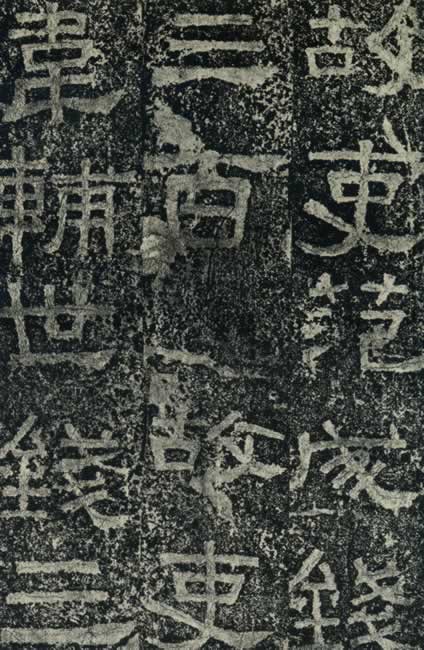 故吏范成錢
三百故吏
韋輔世錢三